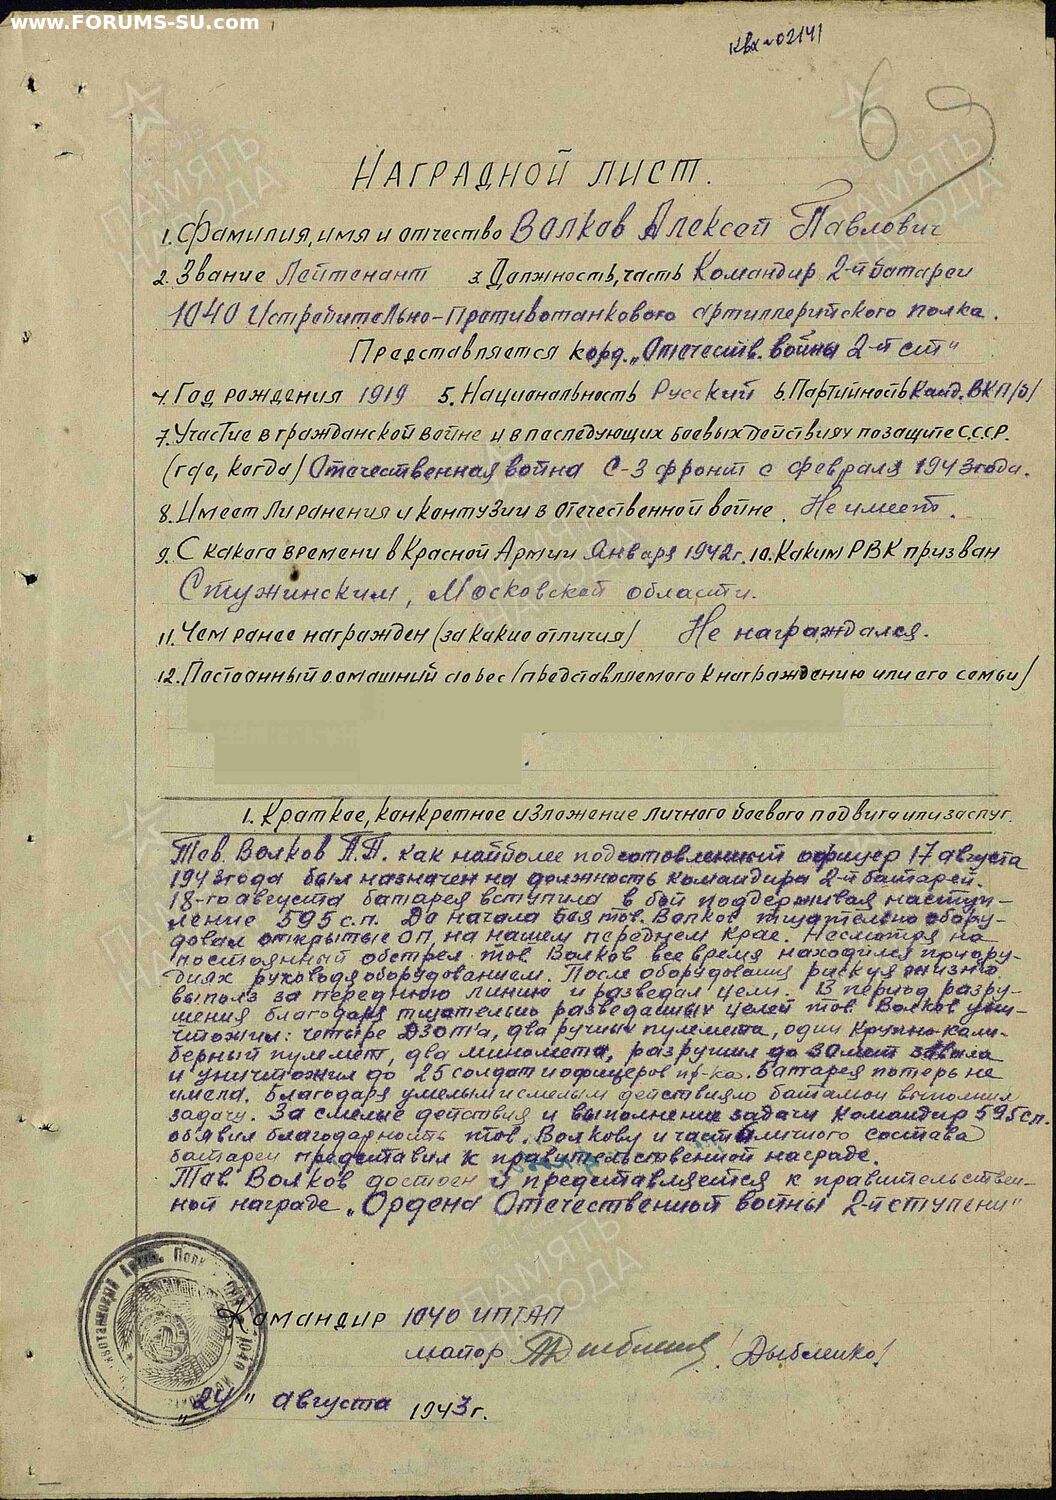 www.FORUMS-SU.com
квх №02141
69
НАГРАДНОЙ ЛИСТ.
1. Фамилия, имя и отчество Волков Алексей Павлович
2. Звание Лейтенант 3. Должность, часть Командир 2-й батареи
1040 Истребительно-Противотанкового артиллерийского полка.
Представляется к орд. „Отечеств. войны 2-й ст"
4. Год рождения 1919 5. Национальность Русский 6. Партийность Канд. ВКП/б/
7. Участие в гражданской войне и в последующих боевых действиях по защите СССР.
(где, когда) Отечественная война С-З фронт с февраля 1943 года.
8. Имеет ли ранения и контузии в отечественной войне. Не имеет.
9. С какого времени в Красной Армии Января 1942 г. 10. Каким РВК призван
Стужинским, Московской области.
11. Чем ранее награжден (за какие отличия) Не награждался.
12. Постоянный домашний адрес (представляемого к награждению или его семьи)
1. Краткое, конкретное изложение личного боевого подвига или заслуг.
Тов. Волков А.П. как наиболее подготовленный офицер 17 августа
1943 года был назначен на должность командира 2-й батарей.
18-го августа батарея вступила в бой поддерживая наступ-
ление 595 с.п. До начала боя тов. Волков тщательно обору-
довал открытые ОП, на нашем переднем крае. Несмотря на
постоянный обстрел тов Волков все время находился при ору-
диях руководя оборудованием. После оборудования рискуя жизнью
выполз за переднюю линию и разведал цели. В период разру-
шения благодаря тщательно разведанных целей тов Волков уни-
чтожил: четыре ДЗОТ'а, два ручных пулемета, один крупно кали-
берный пулемет, два миномета, разрушил до 30 мет завала
и уничтожил до 25 солдат и офицеров пр-ка. Батарея потерь не
имела. Благодаря умелым и смелым действиям батальон выполнил
задачу. За смелые действия и выполнение задачи командир 595 сп.
объявил благодарность тов. Волкову и часть личного состава
батареи представил к правительственной награде.
Тов Волков достоен и представляется к правительствен-
ной награде „Ордена Отечественной войны 2-й ступени"
Командир 1040 ИПТАП
майор /Дыбленко/
„24" августа 1943 г.